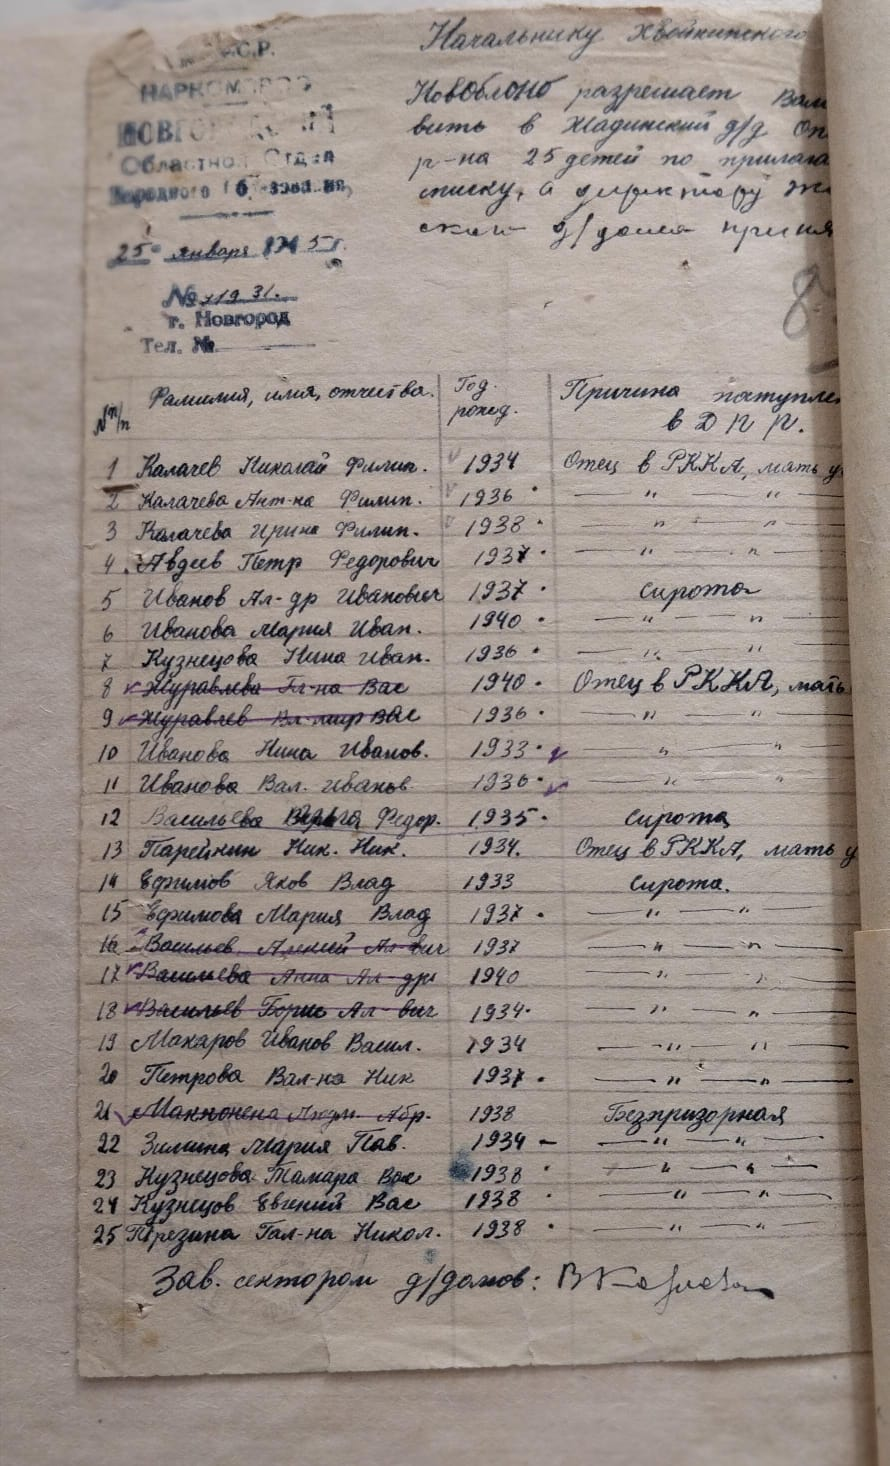 Начальнику Хвойнинского
С.Р.
НАРКОМПРОС
НОВГОРОДСКИЙ
Областной Отдел
Народного Образования
25 января 1945 г.
№ 1931.
г. Новгород
Тел. №
НовОблоно разрешает Вам
вить в Жадинский д/д Оп
р-на 25 детей по прилага
списку, а директору Жа
ского д/дома приня
№ п/п
Фамилия, имя, отчества.
Год рожд.
Причина поступле
в ДПР.
1 Калачев Николай Филип. 1934 Отец в РККА, мать у
2 Калачева Ант-на Филип. 1936 — " — " —
3 Калачева Ирина Филип. 1938 — " — " —
4 Авдеев Петр Федорович 1937 — " — " —
5 Иванов Ал-др Иванович 1937 сирота
6 Иванова Мария Иван. 1940 — " — " —
7 Кузнецова Нина Иван. 1936 — " — " —
8 Журавлева Гл-на Вас 1940 Отец в РККА, мать
9 Журавлев Вл-мир Вас 1936 — " — " —
10 Иванова Нина Иванов. 1933 — " — " —
11 Иванова Вал. Иванов 1936 — " — " —
12 Васильева Федор. 1935 сирота
13 Парейкин Ник. Ник. 1934. Отец в РККА, мать у
14 Ефимов Яков Влад 1933 сирота.
15 Ефимова Мария Влад 1937 — " — " —
16 Васильев Алексей Ал-вич 1937 — " — " —
17 Васильева Анна Ал-др 1940 — " — " —
18 Васильев Борис Ал-вич 1934 — " — " —
19 Макаров Иванов Васил. 1934 — " — " —
20 Петрова Вал-на Ник 1937 — " — " —
21 Макконена Людм. Абр. 1938 Безпризорная
22 Зимина Мария Пав. 1934 — " — " —
23 Кузнецова Тамара Вас 1938 — " — " —
24 Кузнецов Евгений Вас 1938 — " — " —
25 Перезина Гал-на Никол. 1938 — " — " —
Зав. сектором д/домов: